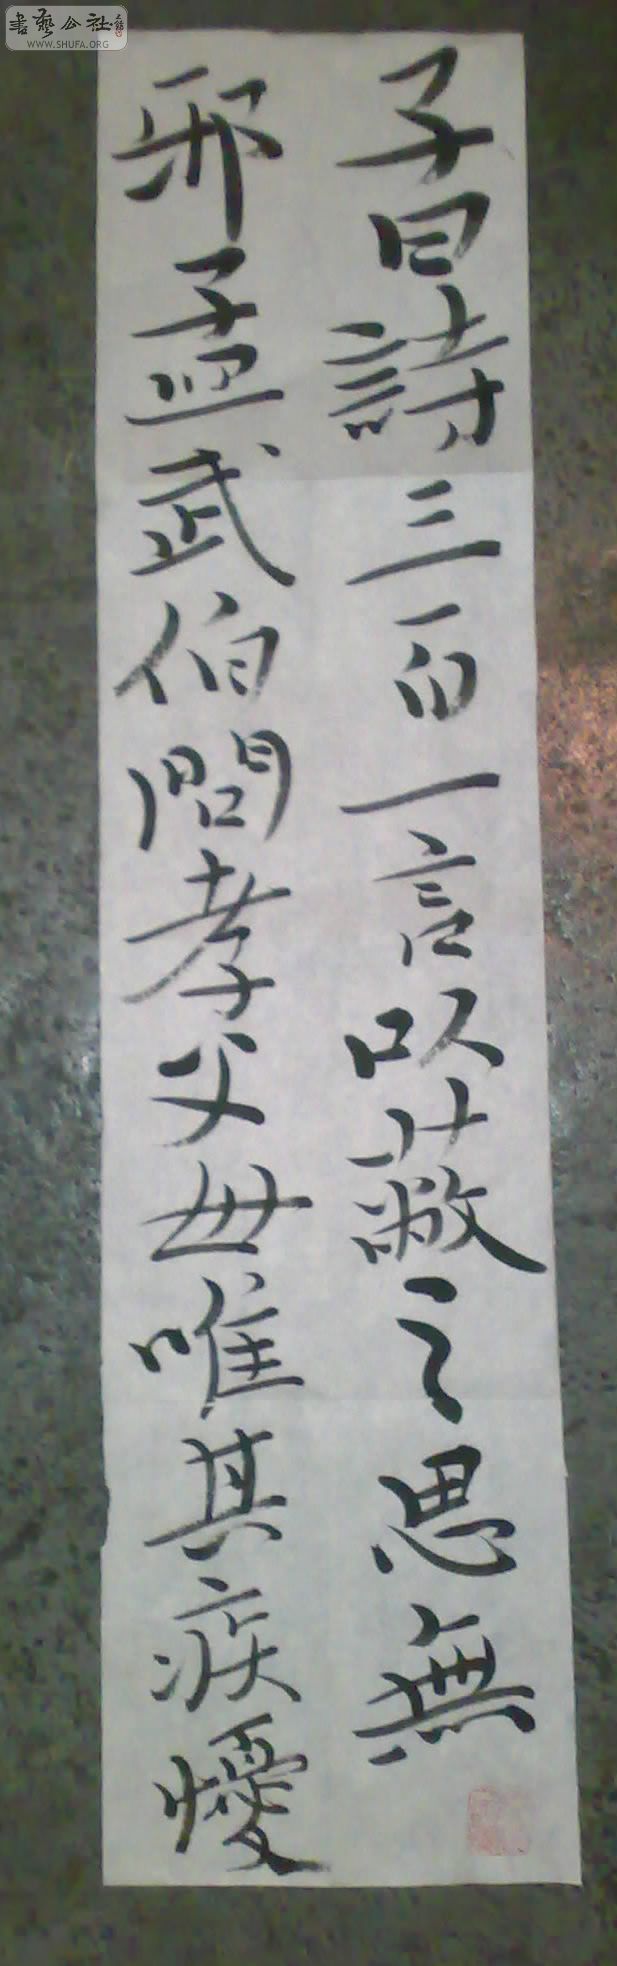 子曰詩三百一言以蔽之思無
邪孟武伯問孝父母唯其疾懮
書藝公社
WWW.SHUFA.ORG